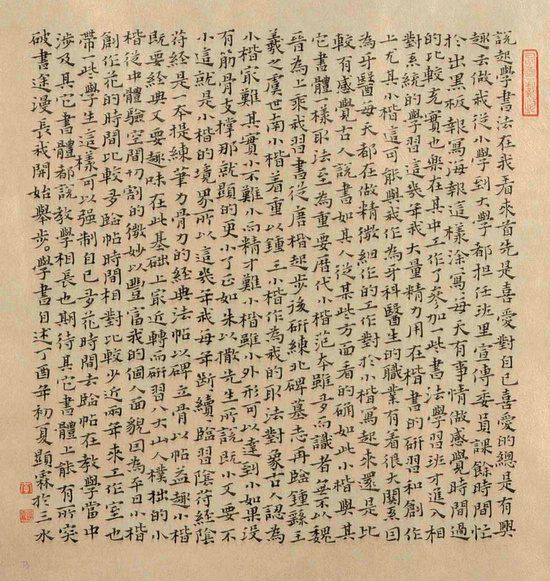 說起學書法在我看來首先是喜愛對自己喜愛的總是有興
趣去做我從小學到大學都担任班里宣傳委員課餘時間忙
於出黑板報寫海報這樣涂寫每天有事情做感覺時間過
的比較充實也樂在其中工作了参加一些書法學習班才進入相
對系統的學習這幾年我大量精力用在楷書的研習和創作
上尤其小楷這可能與我作為牙科醫生的職業有着很大關系因
為牙醫每天都在做精微細作的工作對於小楷寫起來還是比
較有感覺古人說書如其人從某些方面看的确如此小楷與其
它書體一樣取法至為重要歷代小楷范本雖多而識者無不以魏
晉為上乘我習書從唐楷起步後研練北碑墓志再臨鍾繇王
羲之虞世南小楷着重以鍾王小楷作為我的取法對象古人認為
小楷最難其實小不難小而精才難小楷雖小外形可以達到小如果没
有筋骨支撑那就顯的更小了正如朱以撒先生所說既小又要不
小這就是小楷的境界所以這幾年我每年斷續臨習陰符經陰
符經是一本提練筆力骨力的經典法帖以碑立骨以帖益趣小楷
既要經典又要趣味在此基礎上最近轉而研習八大山人樸拙的小
楷從中體驗空間切割的微妙以豐富我的個人面貌因為平日小楷
創作花的時間比較多臨帖時間相對比較少近兩年來工作室也
帶一些學生這樣可以强制自己多花時間去臨帖在教學當中
涉及其它書體都說教學相長也期待其它書體上能有所突
破書途漫長我開始舉步。學書自述丁酉年初夏顯霖於三水